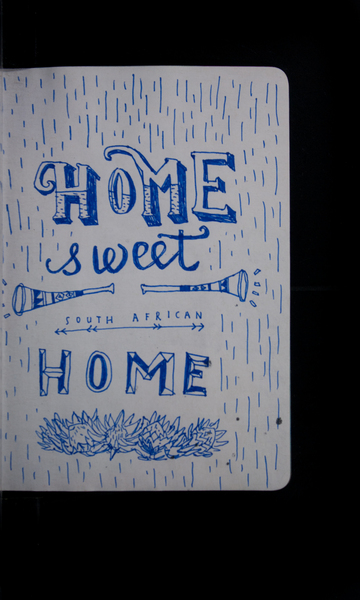 HOME
sweet
SOUTH AFRICAN
HOME